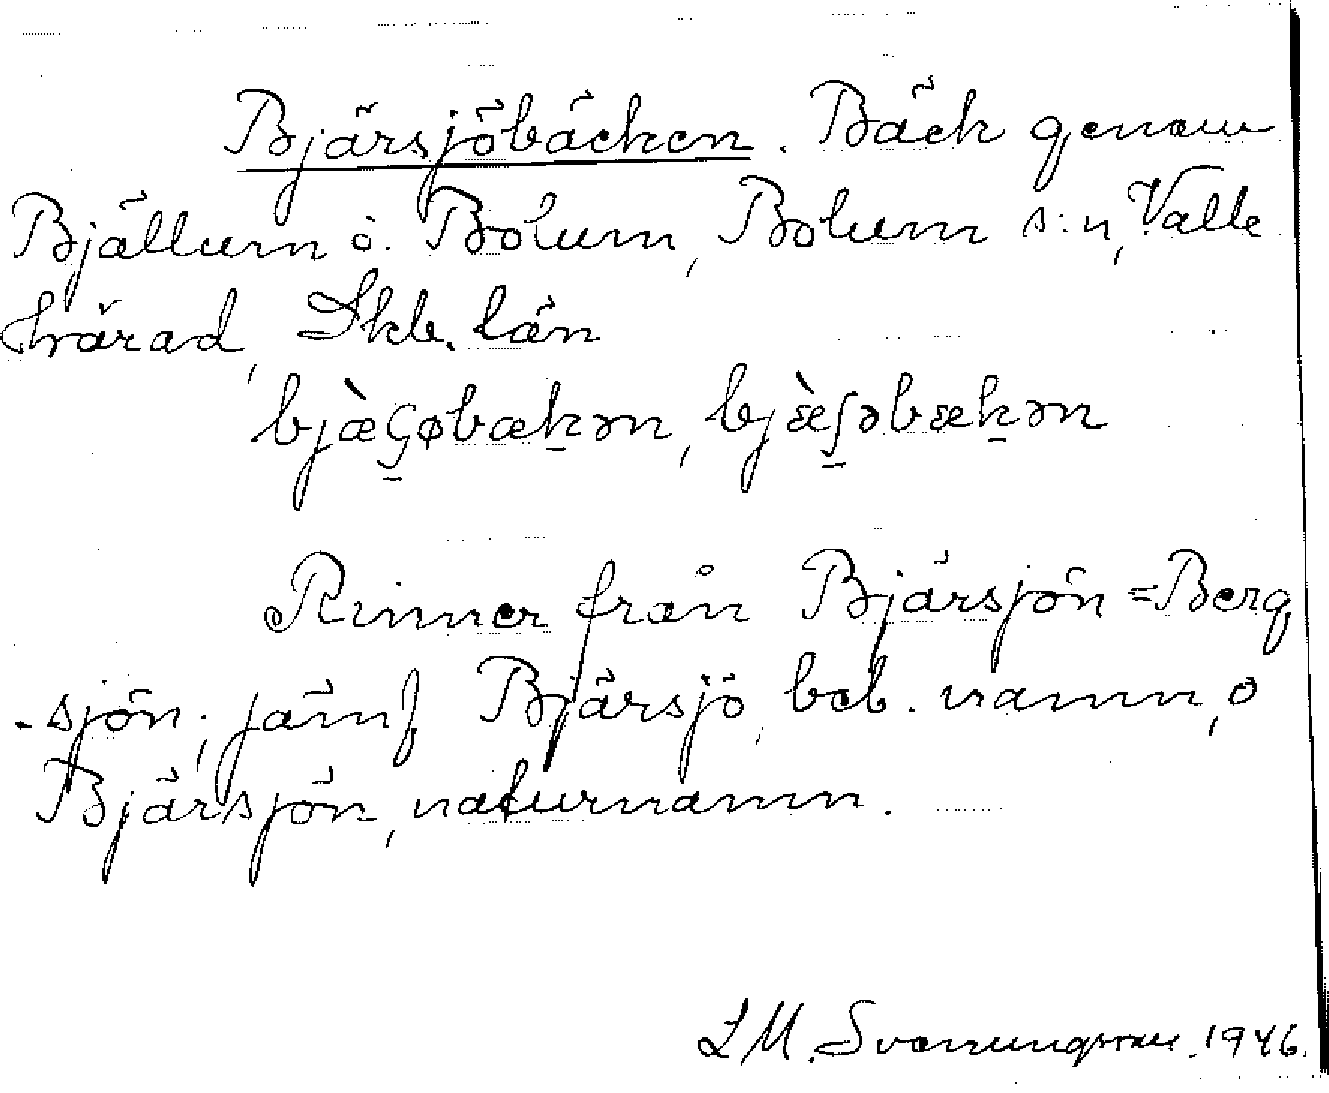 Bjärsjöbäcken. Bäck genom
Bjällum o. Bolum, Bolum s:n, Valle
härad, Skb. län
bjæ̀ꞔøbækən, bjæ̀ʃəbækən
Rinner från Bjärsjön = Berg
-sjön; jämf Bjärsjö, beb. namn, o
Bjärsjön, naturnamn.
L M. Svanungsson. 1946.